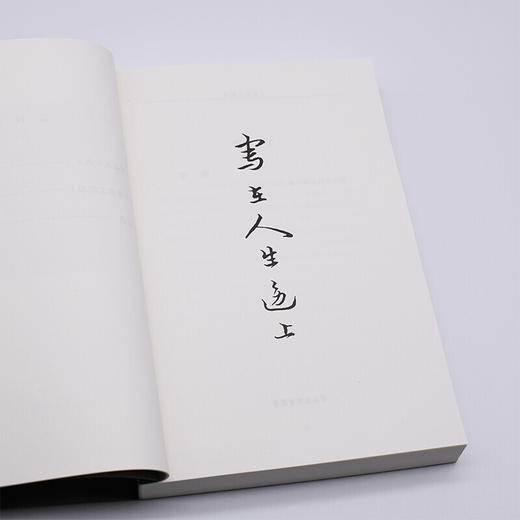 写在人生边上